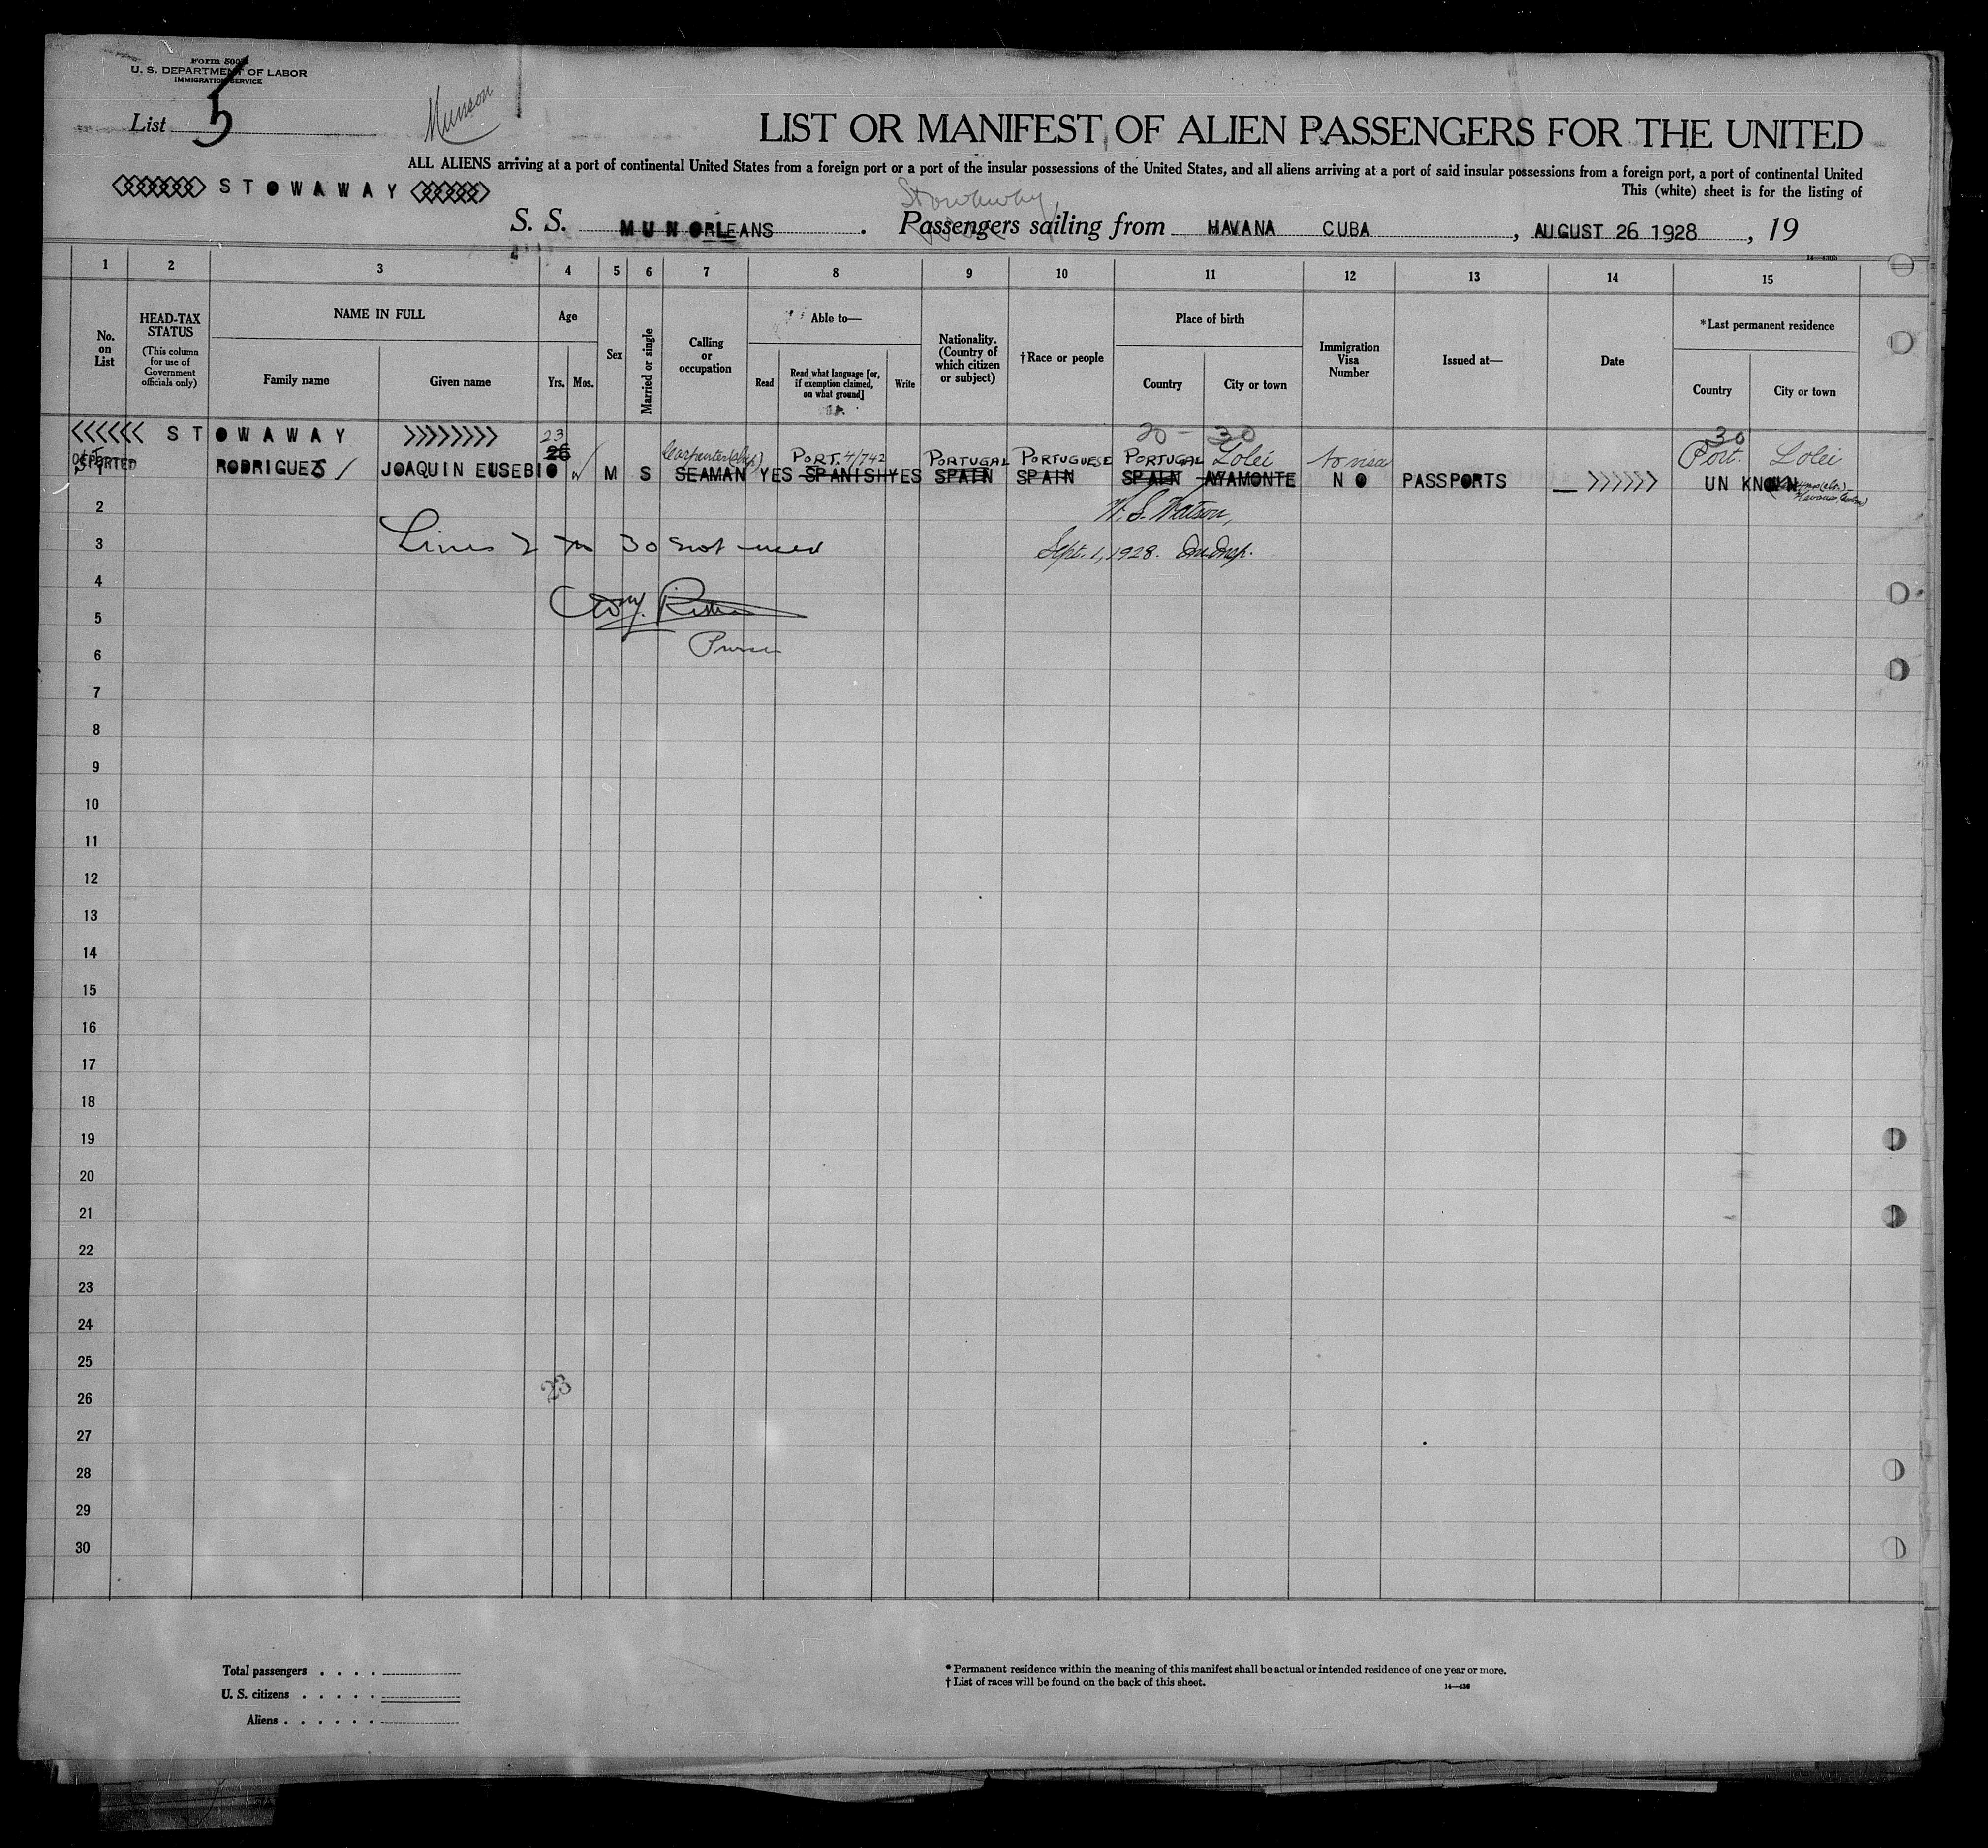 Form 500
U. S. DEPARTMENT OF LABOR
IMMIGRATION SERVICE
List 5
Munson
LIST OR MANIFEST OF ALIEN PASSENGERS FOR THE UNITED
ALL ALIENS arriving at a port of continental United States from a foreign port or a port of the insular possessions of the United States, and all aliens arriving at a port of said insular possessions from a foreign port, a port of continental United
This (white) sheet is for the listing of
STOWAWAY
Stowaway
S. S. MUNORLEANS. Passengers sailing from HAVANA CUBA, AUGUST 26 1928, 19
14—430b
1 2 3 4 5 6 7 8 9 10 11 12 13 14 15
No. on List
HEAD-TAX STATUS
(This column for use of Government officials only)
NAME IN FULL
Family name
Given name
Age
Yrs. Mos.
Sex
Married or single
Calling or occupation
Able to—
Read
Read what language [or, if exemption claimed, on what ground]
Write
Nationality. (Country of which citizen or subject)
†Race or people
Place of birth
Country
City or town
Immigration Visa Number
Issued at—
Date
*Last permanent residence
Country
City or town
<<<<<< STOWAWAY >>>>>>>>
23
20 - 30
30
Carpenter PORT. 4/742 PORTUGAL PORTUGUESE PORTUGAL Lolei No visa Port. Lolei
DEPORTED RODRIGUES JOAQUIN EUSEBIO 26 M S SEAMAN YES SPANISH YES SPAIN SPAIN SPAIN AYAMONTE NO PASSPORTS — >>>>>> UN KNOWN
W. S. Watson,
2
3 Lines 2 to 30 not used
Sept. 1, 1928. Im Insp.
4
5
6 Purser
7
8
9
10
11
12
13
14
15
16
17
18
19
20
21
22
23
24
25
26 23
27
28
29
30
Total passengers . . . .
U. S. citizens . . . . .
Aliens . . . . . .
* Permanent residence within the meaning of this manifest shall be actual or intended residence of one year or more.
† List of races will be found on the back of this sheet.
14—430